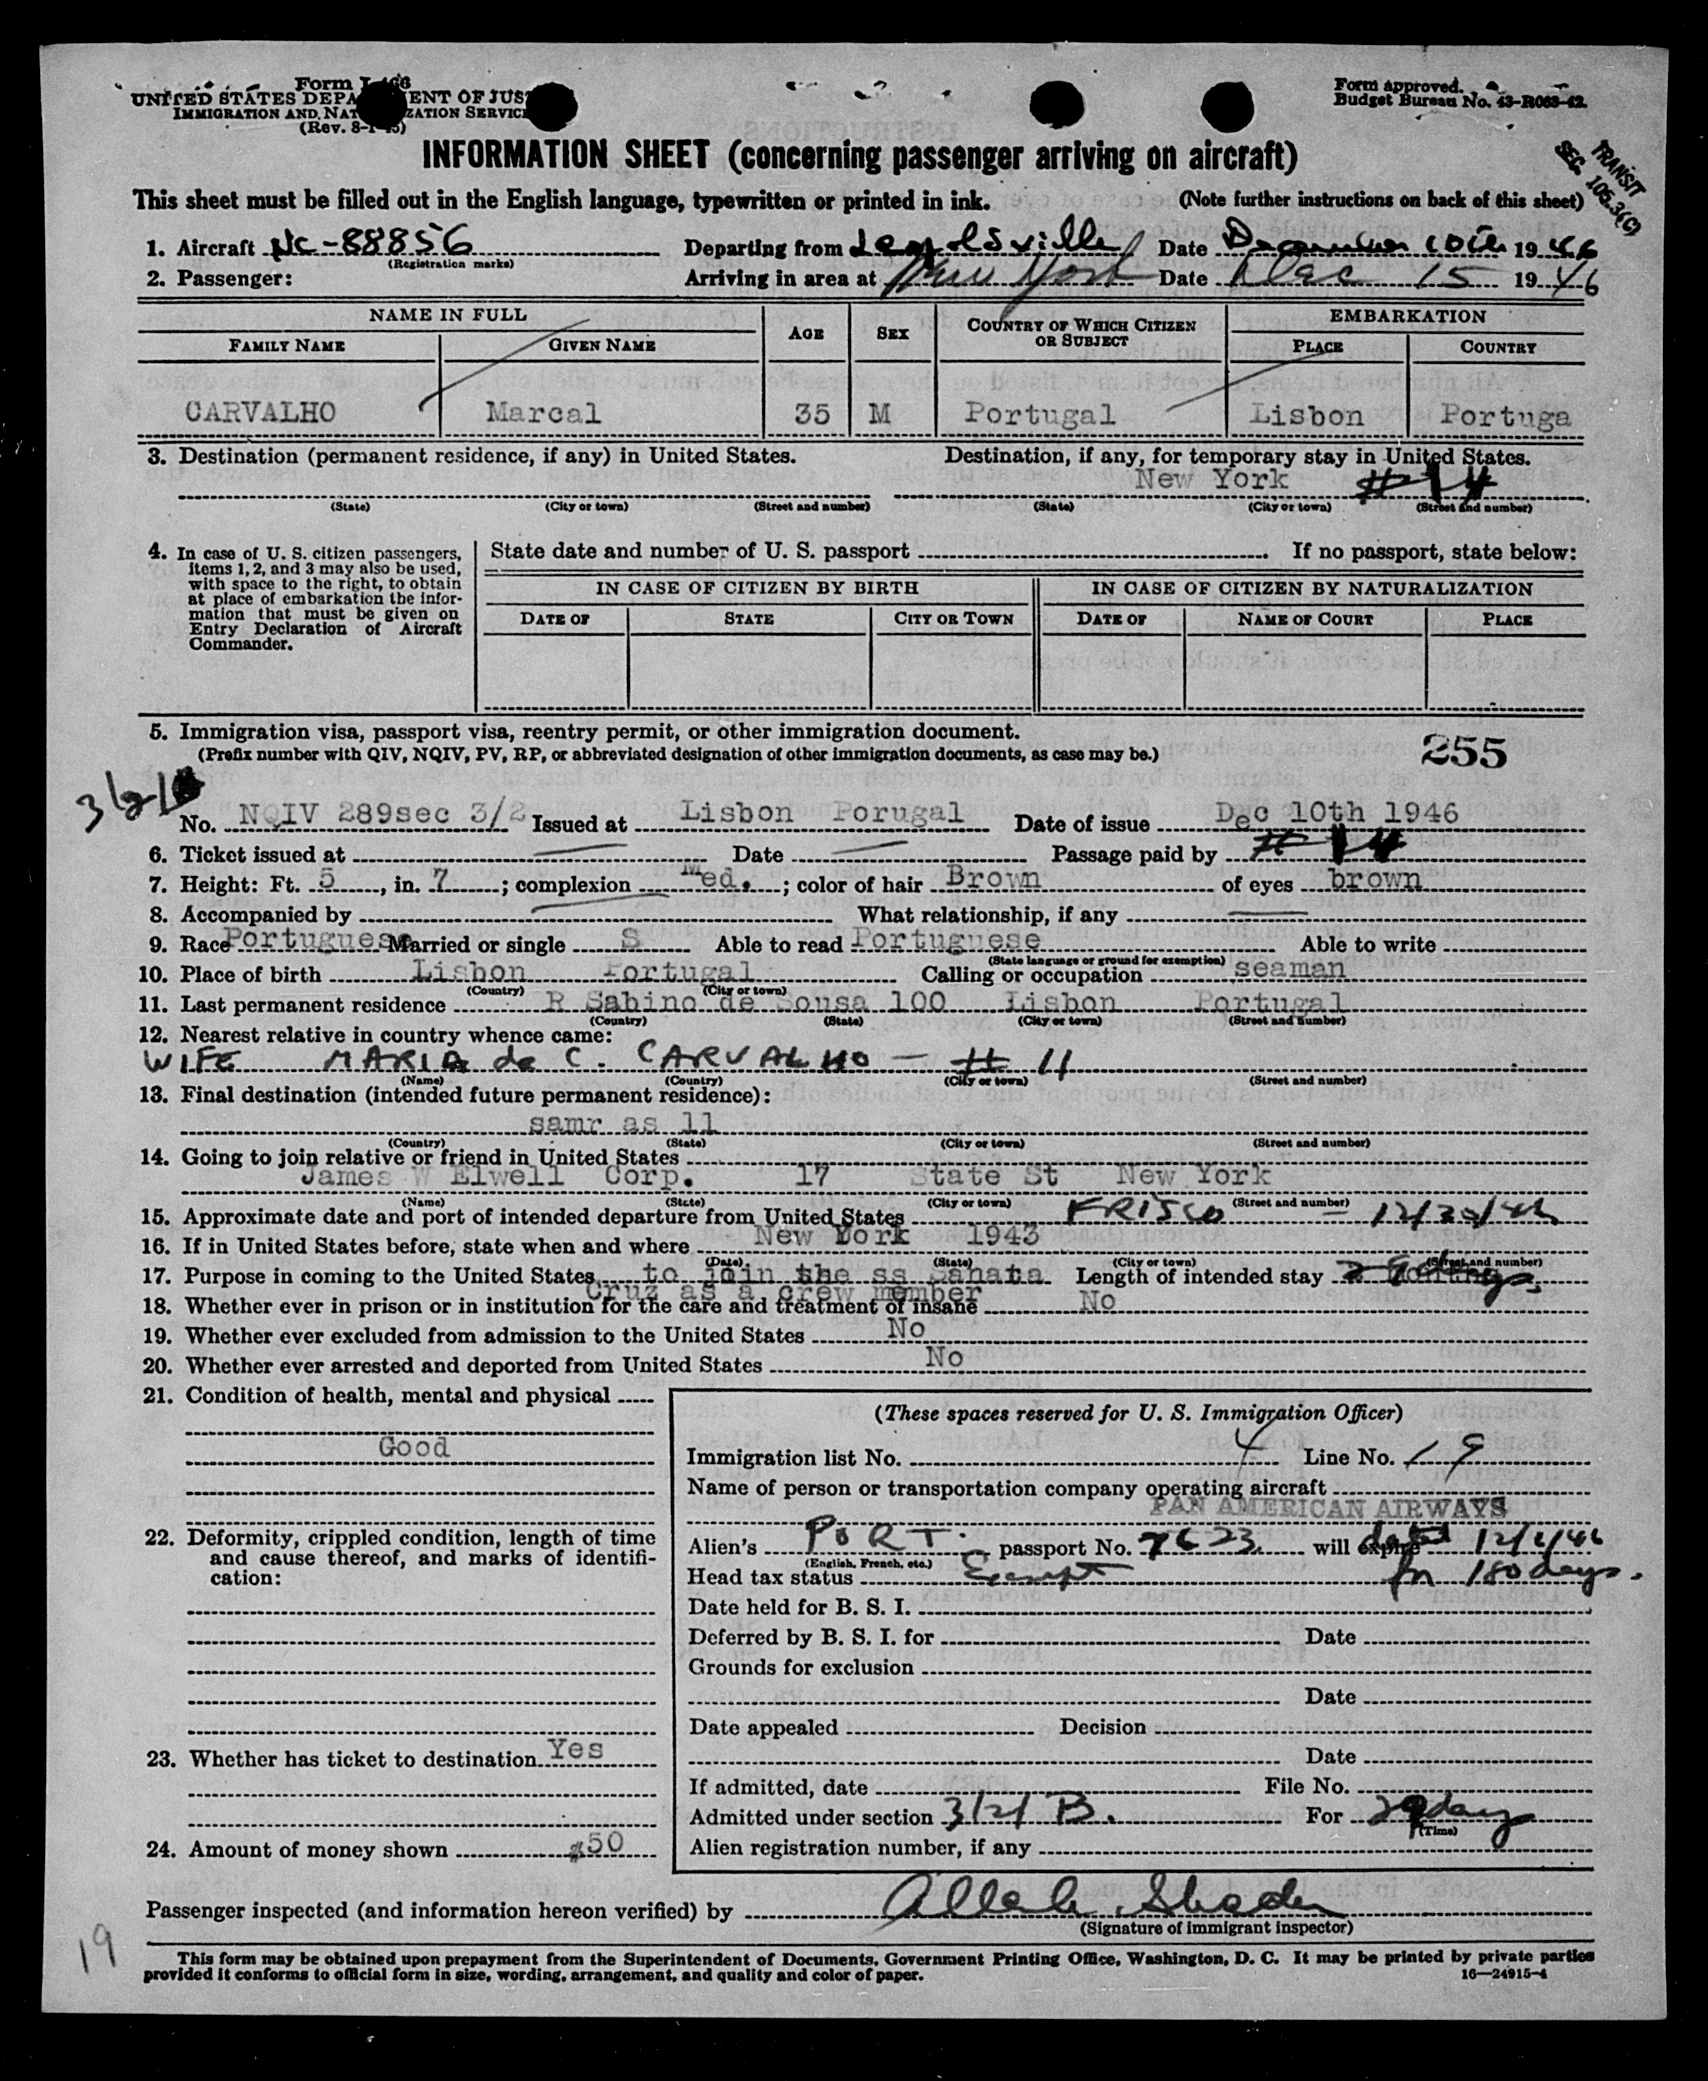 Form I-466
UNITED STATES DEPA ENT OF JUS
IMMIGRATION AND NAT ZATION SERVIC
(Rev. 8-1-45)
Form approved.
Budget Bureau No. 43-R063-42.
TRANSIT
SEC. 105.3(C)
INFORMATION SHEET (concerning passenger arriving on aircraft)
This sheet must be filled out in the English language, typewritten or printed in ink. (Note further instructions on back of this sheet)
1. Aircraft NC-88856 Departing from Leopoldsville Date December 10th 1946
(Registration marks)
2. Passenger: Arriving in area at New York Date Dec 15 1946
NAME IN FULL AGE SEX COUNTRY OF WHICH CITIZEN OR SUBJECT EMBARKATION
FAMILY NAME GIVEN NAME PLACE COUNTRY
CARVALHO Marcal 35 M Portugal Lisbon Portuga
3. Destination (permanent residence, if any) in United States. Destination, if any, for temporary stay in United States.
New York # 14
(State) (City or town) (Street and number) (State) (City or town) (Street and number)
4. In case of U. S. citizen passengers, items 1, 2, and 3 may also be used, with space to the right, to obtain at place of embarkation the information that must be given on Entry Declaration of Aircraft Commander.
State date and number of U. S. passport If no passport, state below:
IN CASE OF CITIZEN BY BIRTH IN CASE OF CITIZEN BY NATURALIZATION
DATE OF STATE CITY OR TOWN DATE OF NAME OF COURT PLACE
5. Immigration visa, passport visa, reentry permit, or other immigration document.
(Prefix number with QIV, NQIV, PV, RP, or abbreviated designation of other immigration documents, as case may be.)
255
No. NQIV 289sec 3/2 Issued at Lisbon Porugal Date of issue Dec 10th 1946
6. Ticket issued at Date Passage paid by # 14
7. Height: Ft. 5, in. 7; complexion Med.; color of hair Brown of eyes brown
8. Accompanied by What relationship, if any
9. Race Portuguese Married or single S Able to read Portuguese Able to write
(State language or ground for exemption)
10. Place of birth Lisbon Portugal Calling or occupation seaman
(Country) (City or town)
11. Last permanent residence R Sabino de Sousa 100 Lisbon Portugal
(Country) (State) (City or town) (Street and number)
12. Nearest relative in country whence came:
WIFE MARIA de C. CARVALHO — # 11
(Name) (Country) (City or town) (Street and number)
13. Final destination (intended future permanent residence):
samr as 11
(Country) (State) (City or town) (Street and number)
14. Going to join relative or friend in United States
James W Elwell Corp. 17 State St New York
(Name) (State) (City or town) (Street and number)
15. Approximate date and port of intended departure from United States FRISCO — 12/20/46
16. If in United States before, state when and where New York 1943
(Date) (State) (City or town) (Street and number)
17. Purpose in coming to the United States to join the ss Sahata Length of intended stay 29 days
Cruz as a crew member
18. Whether ever in prison or in institution for the care and treatment of insane No
19. Whether ever excluded from admission to the United States No
20. Whether ever arrested and deported from United States No
21. Condition of health, mental and physical
Good
22. Deformity, crippled condition, length of time and cause thereof, and marks of identification:
23. Whether has ticket to destination Yes
24. Amount of money shown $50
(These spaces reserved for U. S. Immigration Officer)
Immigration list No. 4 Line No. 19
Name of person or transportation company operating aircraft
PAN AMERICAN AIRWAYS
Alien's PORT. passport No. 7623 will expire dated 12/6/46
(English, French, etc.)
Head tax status Exempt for 180 days.
Date held for B. S. I.
Deferred by B. S. I. for Date
Grounds for exclusion
Date
Date appealed Decision
Date
If admitted, date File No.
Admitted under section 3/2/ B. For 29 days
(Time)
Alien registration number, if any
Passenger inspected (and information hereon verified) by
(Signature of immigrant inspector)
19
This form may be obtained upon prepayment from the Superintendent of Documents, Government Printing Office, Washington, D. C. It may be printed by private parties
provided it conforms to official form in size, wording, arrangement, and quality and color of paper. 16—24915-4